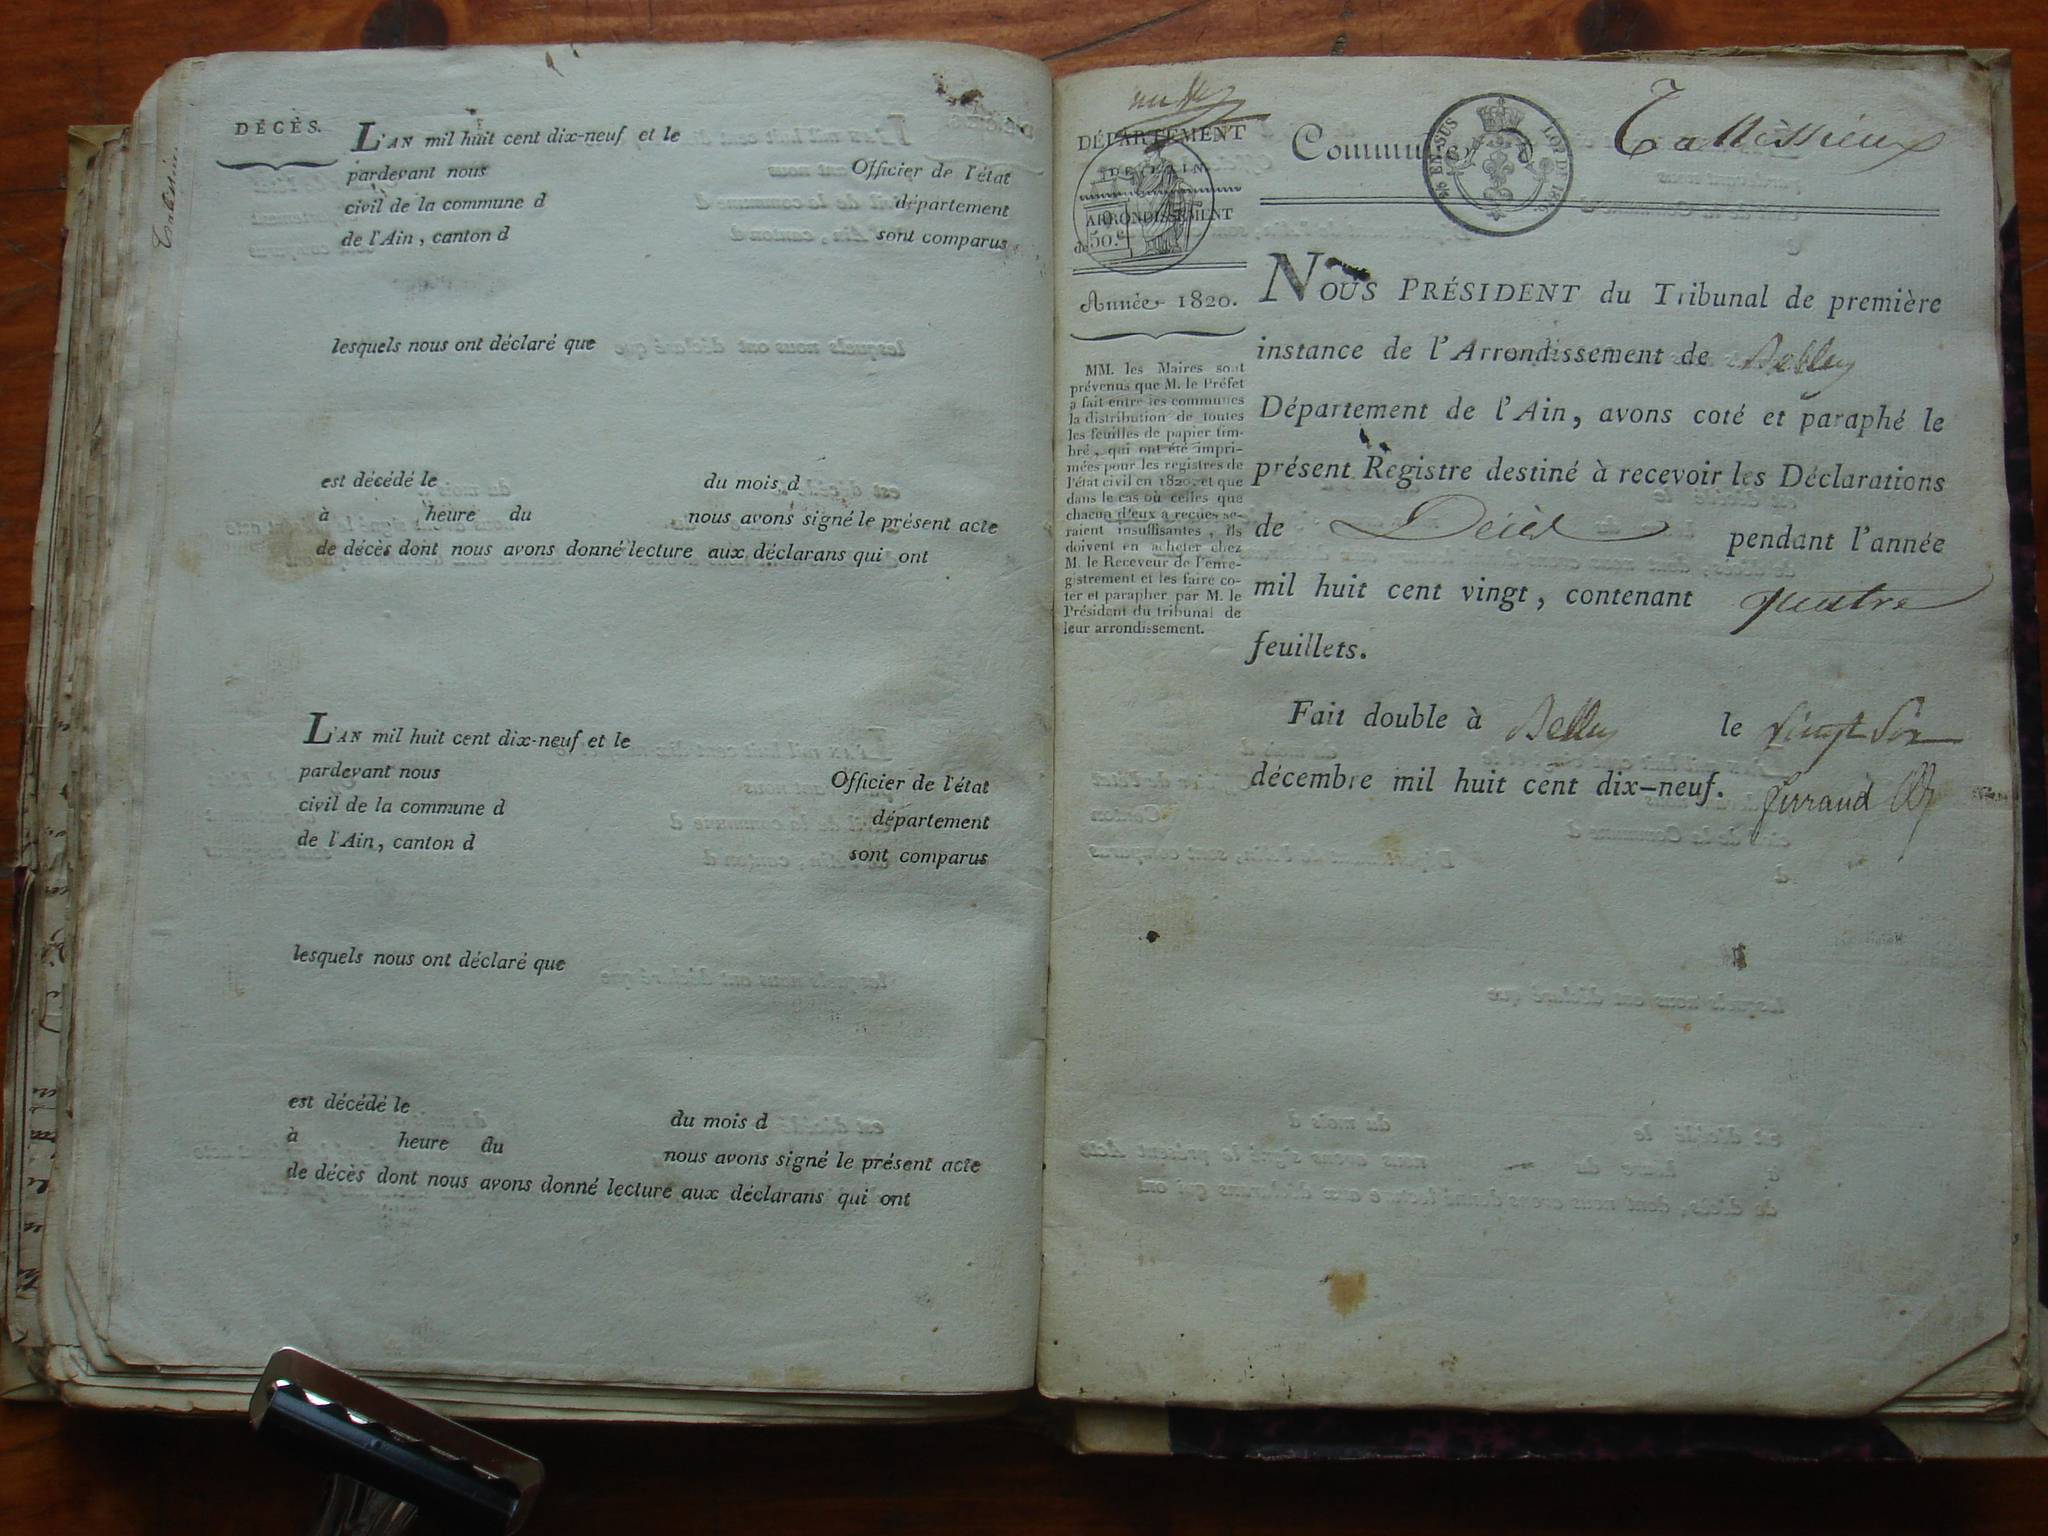 DÉCÈS.
L'AN mil huit cent dix-neuf et le
pardevant nous Officier de l'état
civil de la commune d département
de l'Ain, canton d sont comparus
lesquels nous ont déclaré que
est décédé le du mois d
à heure du nous avons signé le présent acte
de décès dont nous avons donné lecture aux déclarans qui ont
L'AN mil huit cent dix-neuf et le
pardevant nous Officier de l'état
civil de la commune d département
de l'Ain, canton d sont comparus
lesquels nous ont déclaré que
est décédé le du mois d
à heure du nous avons signé le présent acte
de décès dont nous avons donné lecture aux déclarans qui ont
DÉPARTEMENT
DE L'AIN.
ARRONDISSEMENT
de
50.c
Année 1820.
MM. les Maires sont
prévenus que M. le Préfet
a fait entre les communes
la distribution de toutes
les feuilles de papier tim-
bré, qui ont été impri-
mées pour les registres de
l'état civil en 1820, et que
dans le cas où celles que
chacun d'eux a reçues se-
raient insuffisantes, ils
doivent en acheter chez
M. le Receveur de l'enre-
gistrement et les faire co-
ter et parapher par M. le
Président du tribunal de
leur arrondissement.
Commune Talissieux
EN SUS LOI DE
NOUS PRÉSIDENT du Tribunal de première
instance de l'Arrondissement de Belley
Département de l'Ain, avons coté et paraphé le
présent Registre destiné à recevoir les Déclarations
de Décès pendant l'année
mil huit cent vingt, contenant quatre
feuillets.
Fait double à Belley le vingt Six
décembre mil huit cent dix-neuf. ferraud